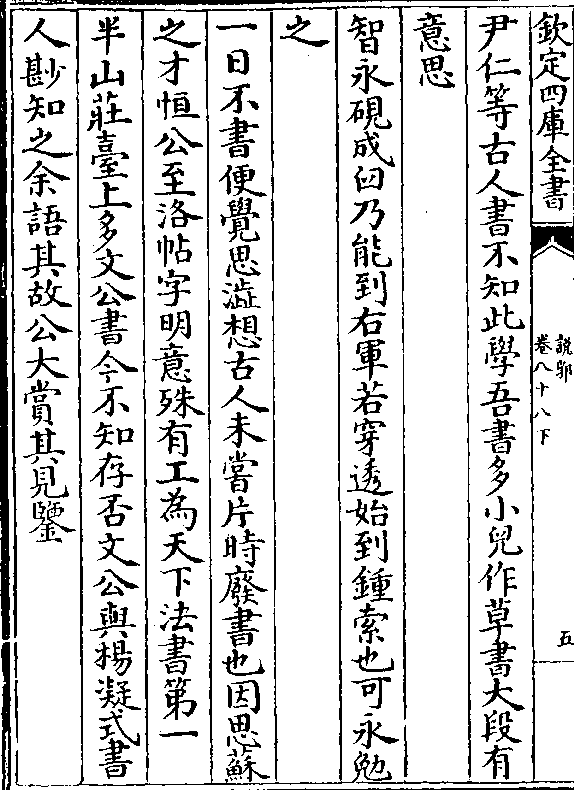 欽定四庫全書
說郛
卷八十八下
五
尹仁等古人書不知此學吾書多小兒作草書大段有
意思
智永硯成臼乃能到右軍若穿透始到鍾索也可永勉
之
一日不書便覺思澁想古人未嘗片時廢書也因思蘇
之才恒公至洛帖字明意殊有工為天下法書第一
半山莊臺上多文公書今不知存否文公與楊凝式書
人尠知之余語其故公大賞其見鑒